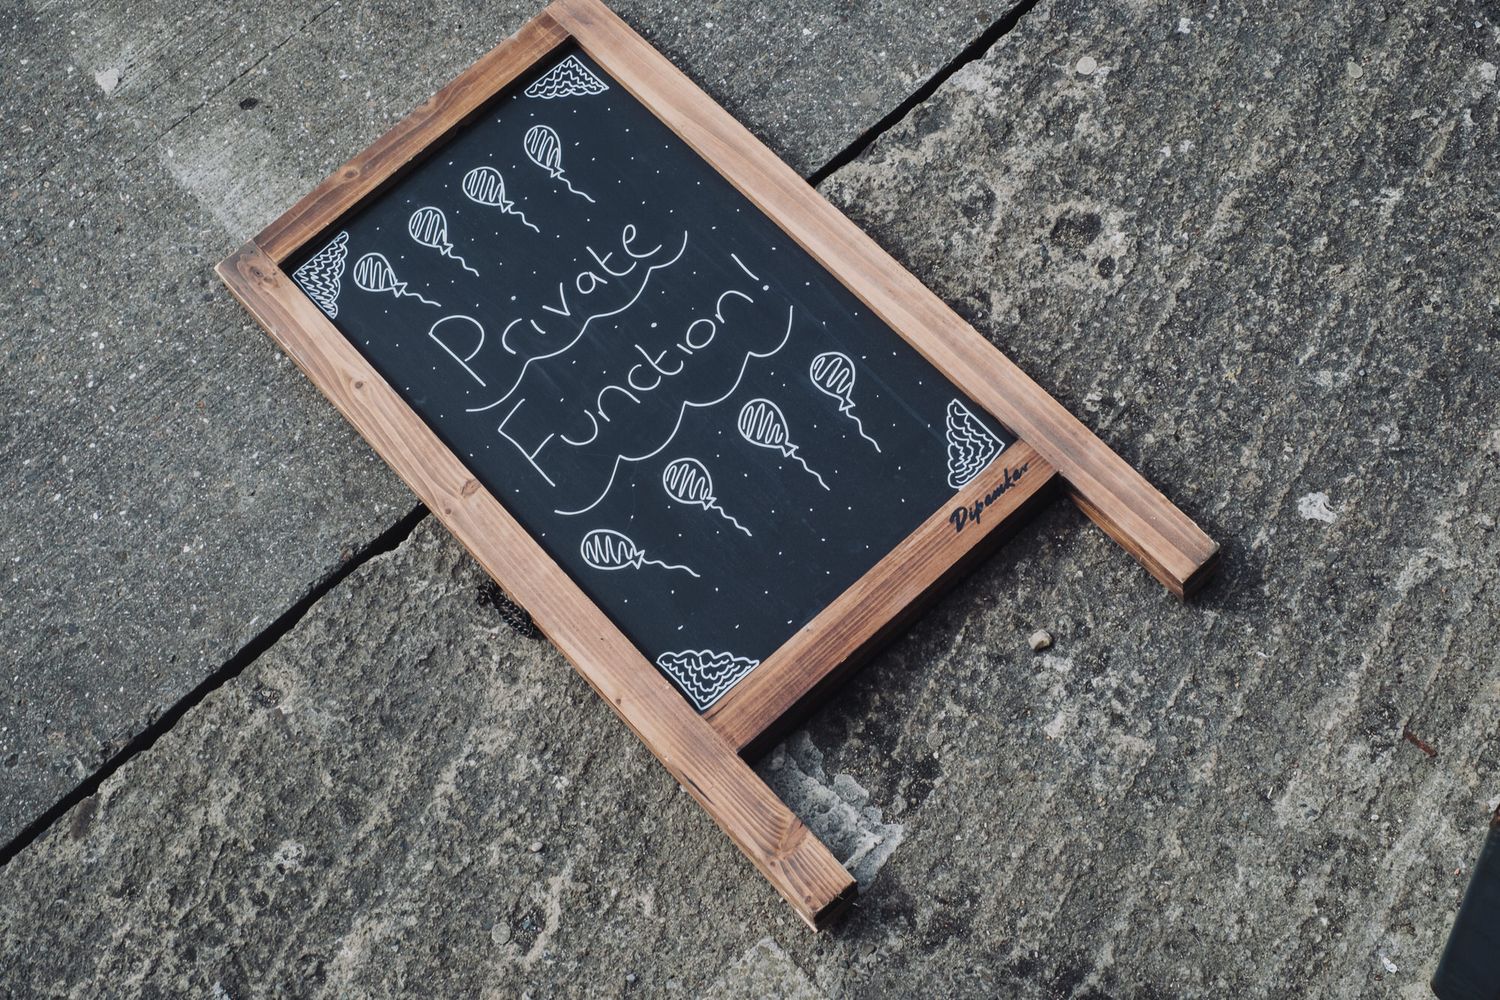 Private
Function!
Dipamkar